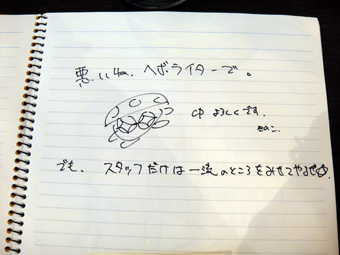 悪いね。ヘボライターで。
よろしくです。
でも、スタッフだけは一流のところをみせてやるぜ